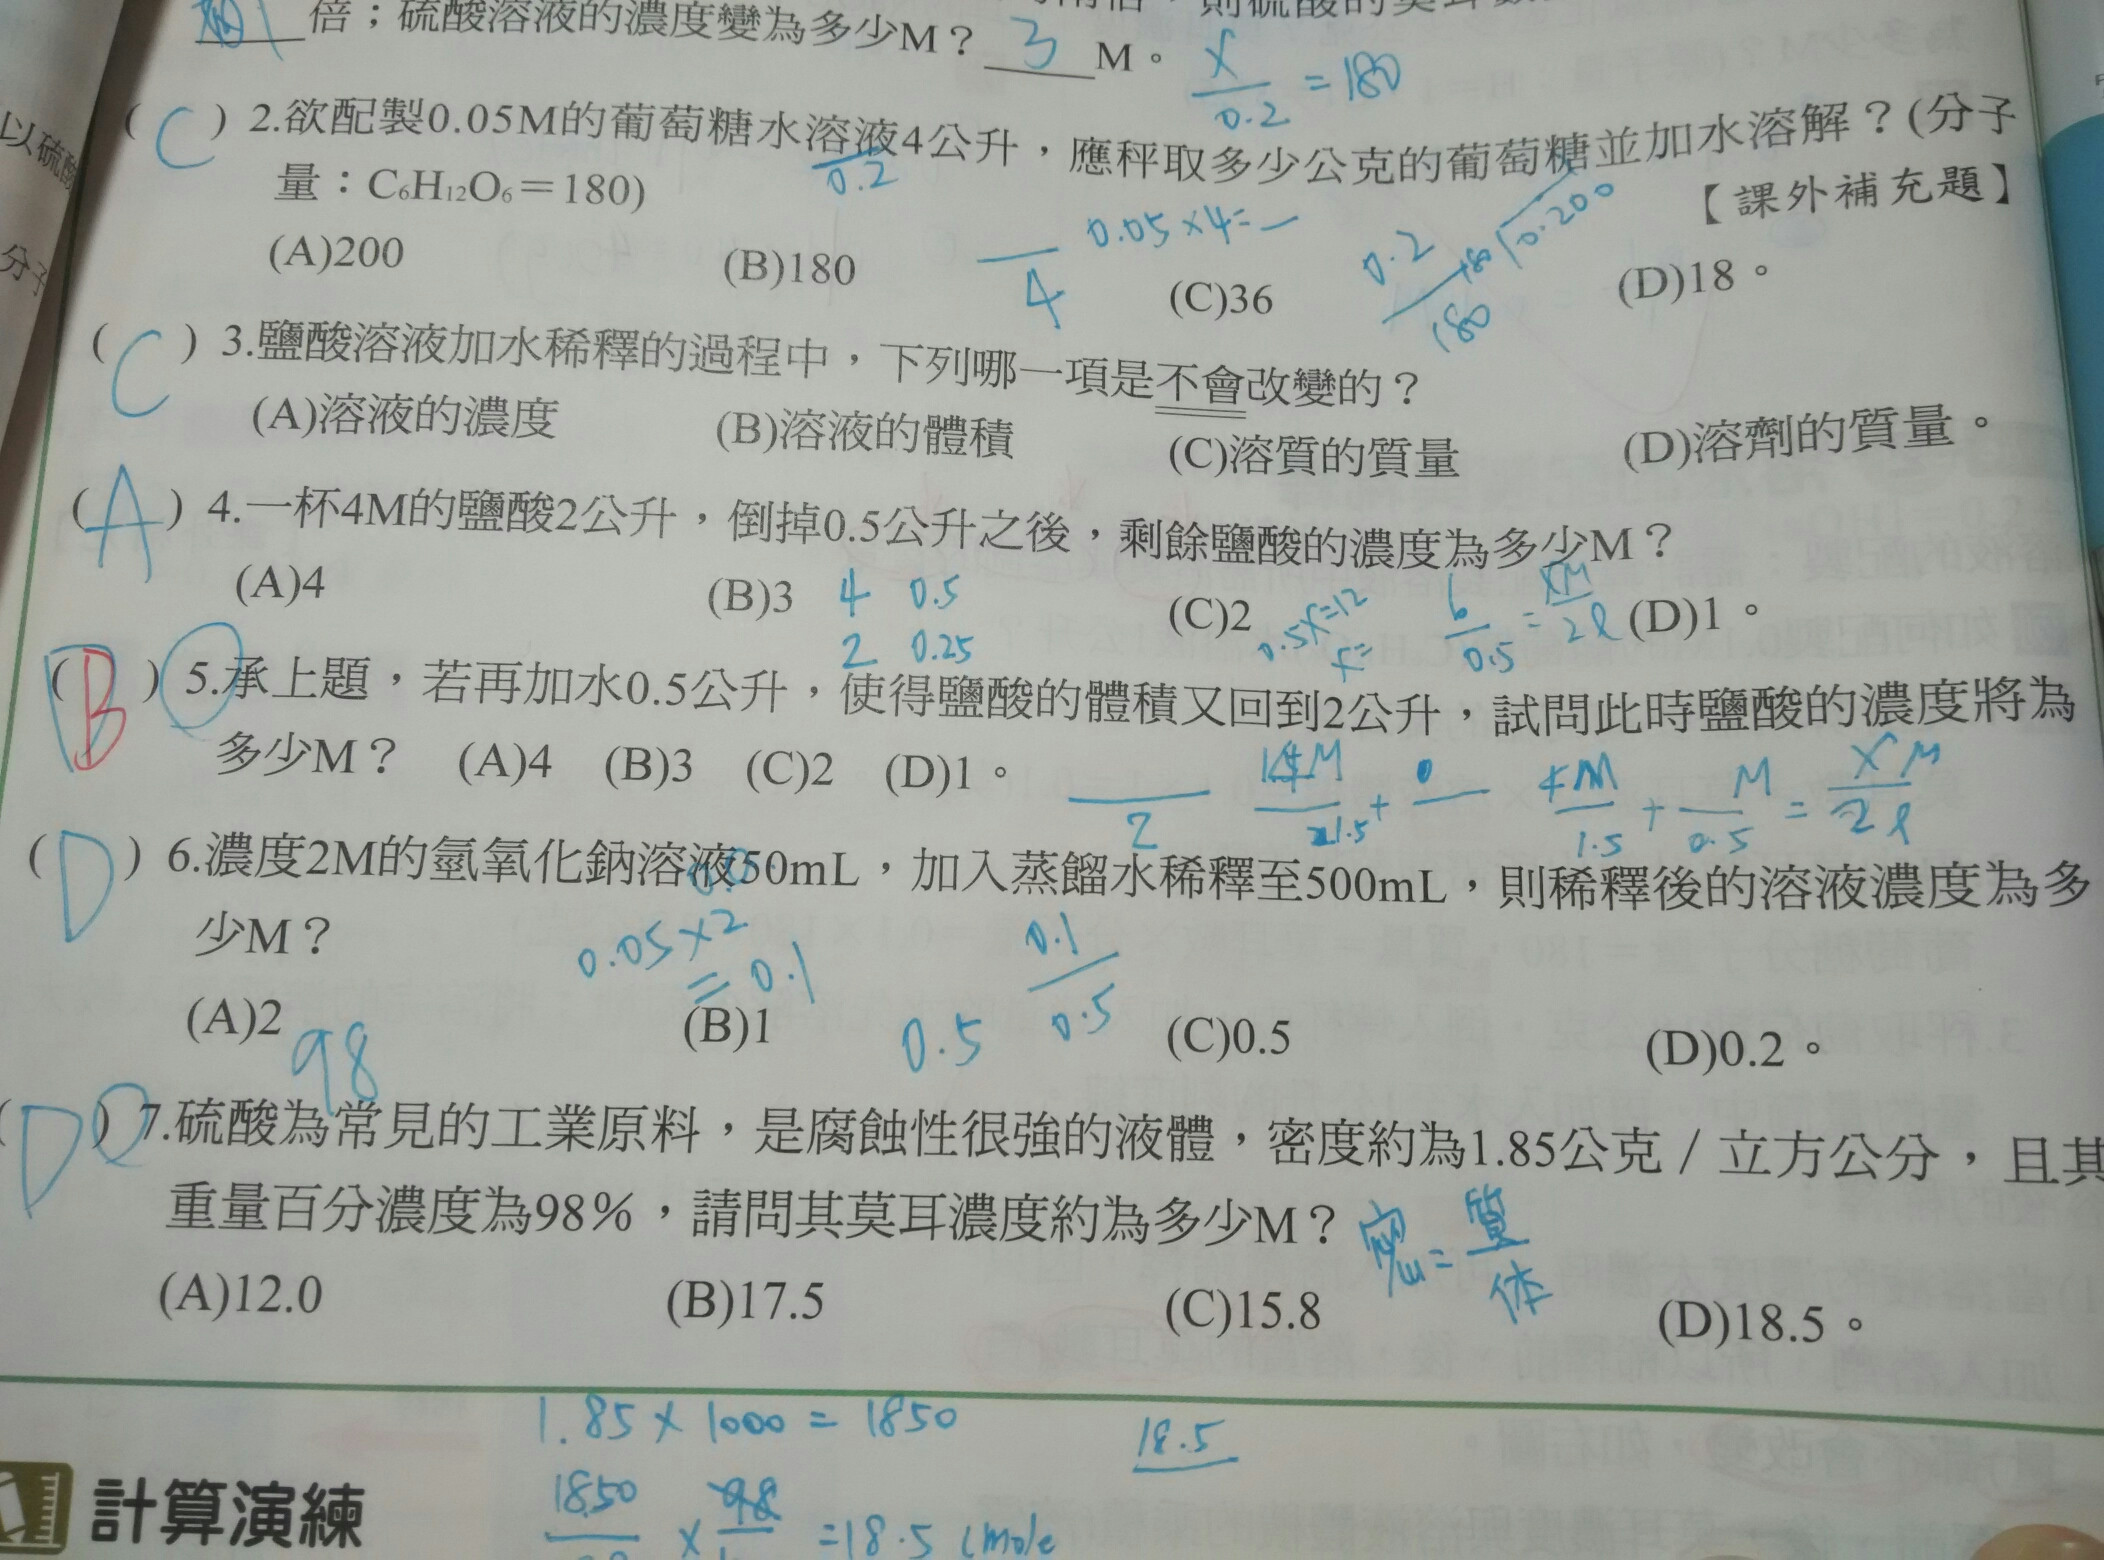 倍；硫酸溶液的濃度變為多少M？ 3 M。
x/0.2 = 180
( C ) 2.欲配製0.05M的葡萄糖水溶液4公升，應秤取多少公克的葡萄糖並加水溶解？(分子
0.2
量：C₆H₁₂O₆＝180)
【課外補充題】
0.05×4=
4
0.2/180
180 0.200
(A)200 (B)180 (C)36 (D)18。
( C ) 3.鹽酸溶液加水稀釋的過程中，下列哪一項是不會改變的？
(A)溶液的濃度 (B)溶液的體積 (C)溶質的質量 (D)溶劑的質量。
( A ) 4.一杯4M的鹽酸2公升，倒掉0.5公升之後，剩餘鹽酸的濃度為多少M？
(A)4 (B)3 (C)2 (D)1。
4 0.5
2 0.25
0.5x=12
x=
6/0.5 = xM/2l
( B ) 5.承上題，若再加水0.5公升，使得鹽酸的體積又回到2公升，試問此時鹽酸的濃度將為
多少M？ (A)4 (B)3 (C)2 (D)1。
2
4M/1.5 + M/0.5 = xM/2l
( D ) 6.濃度2M的氫氧化鈉溶液50mL，加入蒸餾水稀釋至500mL，則稀釋後的溶液濃度為多
少M？
0.05×2
=0.1
0.1/0.5
0.5
(A)2 (B)1 (C)0.5 (D)0.2。
98
( D ) 7.硫酸為常見的工業原料，是腐蝕性很強的液體，密度約為1.85公克／立方公分，且其
重量百分濃度為98%，請問其莫耳濃度約為多少M？
密=質/体
(A)12.0 (B)17.5 (C)15.8 (D)18.5。
1.85×1000=1850
18.5
計算演練
1850 × 98 =18.5 (mole